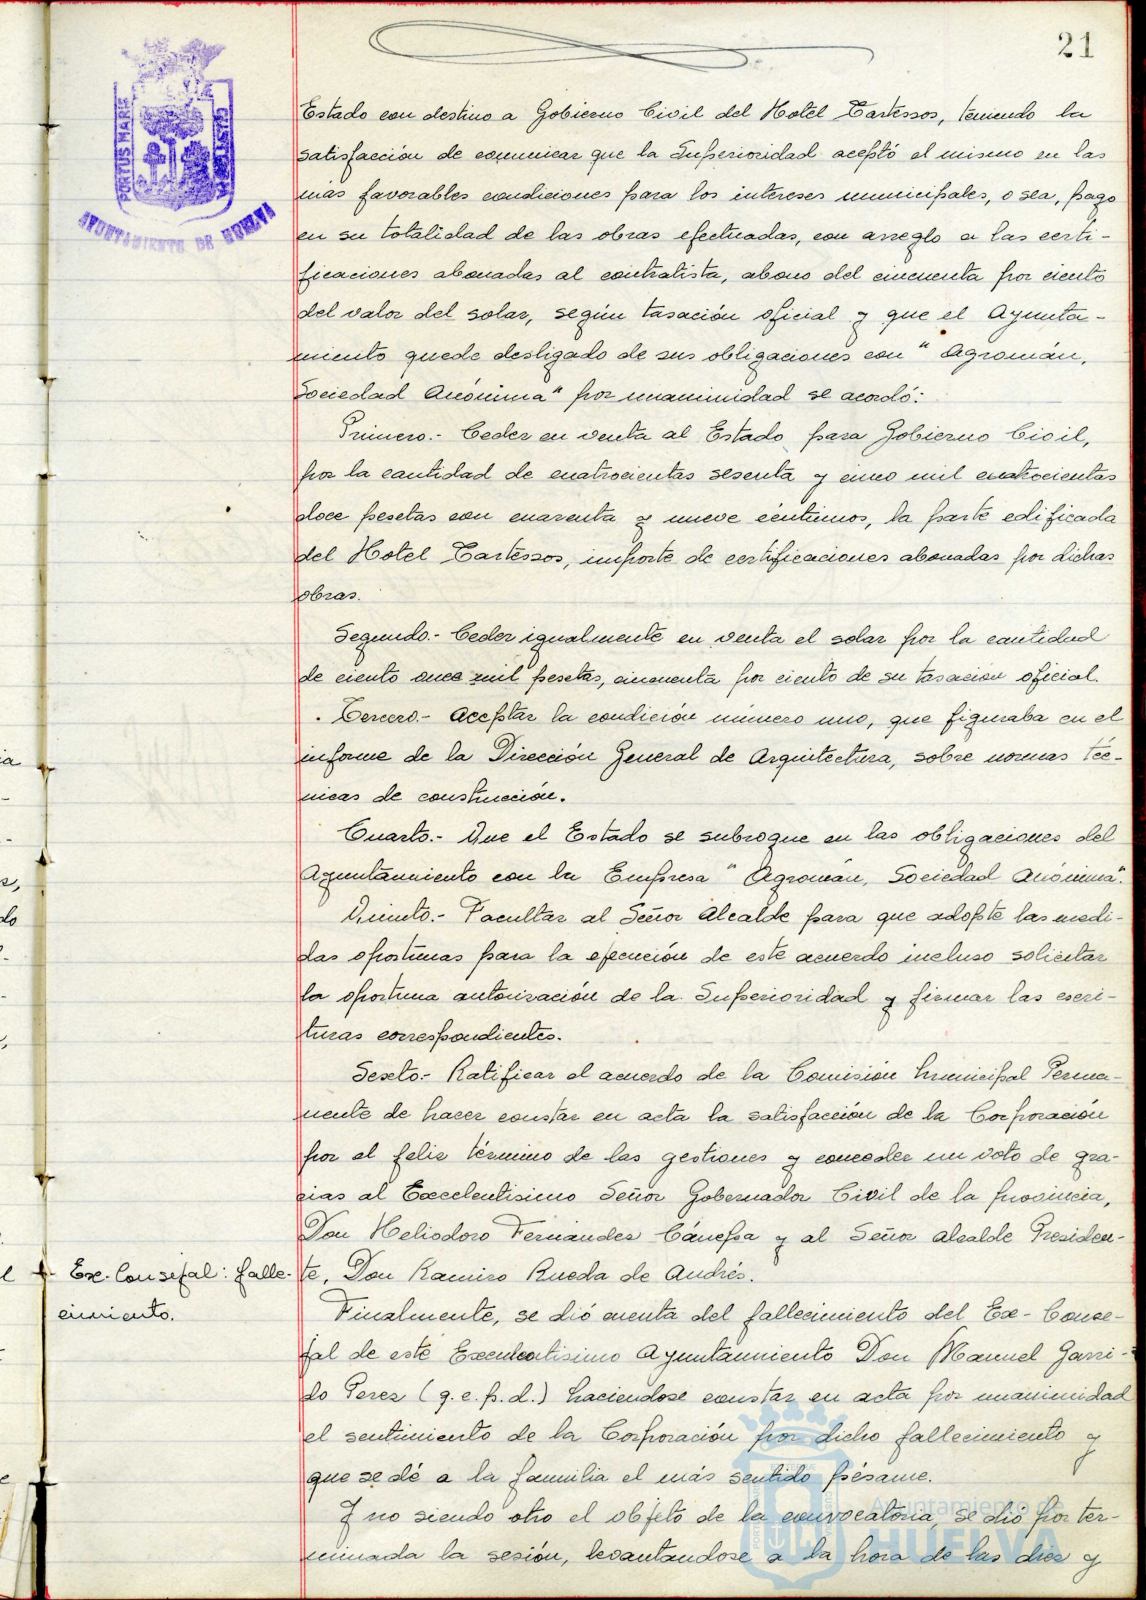 21
PORTUS MARIS
AYUNTAMIENTO DE HUELVA
Estado con destino a Gobierno Civil del Hotel Tartessos, teniendo la
satisfacción de comunicar que la Superioridad aceptó el mismo en las
mas favorables condiciones para los intereses municipales, o sea, pago
en su totalidad de las obras efectuadas, con arreglo a las certi-
ficaciones abonadas al contratista, abono del cincuenta por ciento
del valor del solar, según tasación oficial y que el Ayunta-
miento quede desligado de sus obligaciones con "Agromán,
Sociedad Anónima" por unanimidad se acordó:
Primero.- Ceder en venta al Estado para Gobierno Civil,
por la cantidad de cuatrocientas sesenta y cinco mil cuatrocientas
doce pesetas con cuarenta y nueve céntimos, la parte edificada
del Hotel Tartessos, importe de certificaciones abonadas por dichas
obras.
Segundo.- Ceder igualmente en venta el solar por la cantidad
de ciento once mil pesetas, cincuenta por ciento de su tasación oficial.
Tercero.- Aceptar la condición número uno, que figuraba en el
informe de la Dirección General de Arquitectura, sobre normas téc-
nicas de construcción.
Cuarto.- Que el Estado se subrogue en las obligaciones del
Ayuntamiento con la Empresa "Agromán, Sociedad Anónima".
Quinto.- Facultar al Señor Alcalde para que adopte las medi-
das oportunas para la ejecución de este acuerdo incluso solicitar
la oportuna autorización de la Superioridad y firmar las escri-
turas correspondientes.
Sexto.- Ratificar el acuerdo de la Comisión Municipal Perma-
nente de hacer constar en acta la satisfacción de la Corporación
por el feliz término de las gestiones y conceder un voto de gra-
cias al Excelentisimo Señor Gobernador Civil de la provincia,
Don Heliodoro Fernández Cánepa y al Señor Alcalde Presiden-
te, Don Ramiro Rueda de Andrés.
Ex-Consejal: falle-
cimiento.
Finalmente, se dió cuenta del fallecimiento del Ex-Conse-
jal de este Excelentisimo Ayuntamiento Don Manuel Garri-
do Perez (q.e.p.d.) haciendose constar en acta por unanimidad
el sentimiento de la Corporación por dicho fallecimiento y
que se dé a la familia el más sentido pésame.
Y no siendo otro el objeto de la convocatoria, se dió por ter-
minada la sesión, levantandose a la hora de las diez y
Ayuntamiento de
HUELVA